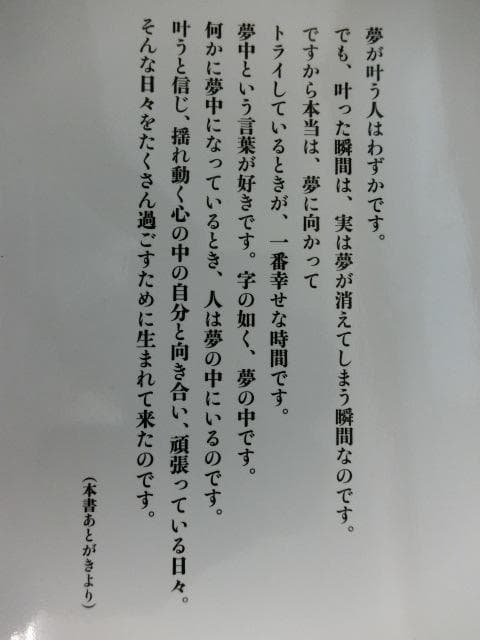 夢が叶う人はわずかです。
でも、叶った瞬間は、実は夢が消えてしまう瞬間なのです。
ですから本当は、夢に向かって
トライしているときが、一番幸せな時間です。
夢中という言葉が好きです。字の如く、夢の中です。
何かに夢中になっているとき、人は夢の中にいるのです。
叶うと信じ、揺れ動く心の中の自分と向き合い、頑張っている日々。
そんな日々をたくさん過ごすために生まれて来たのです。
（本書あとがきより）